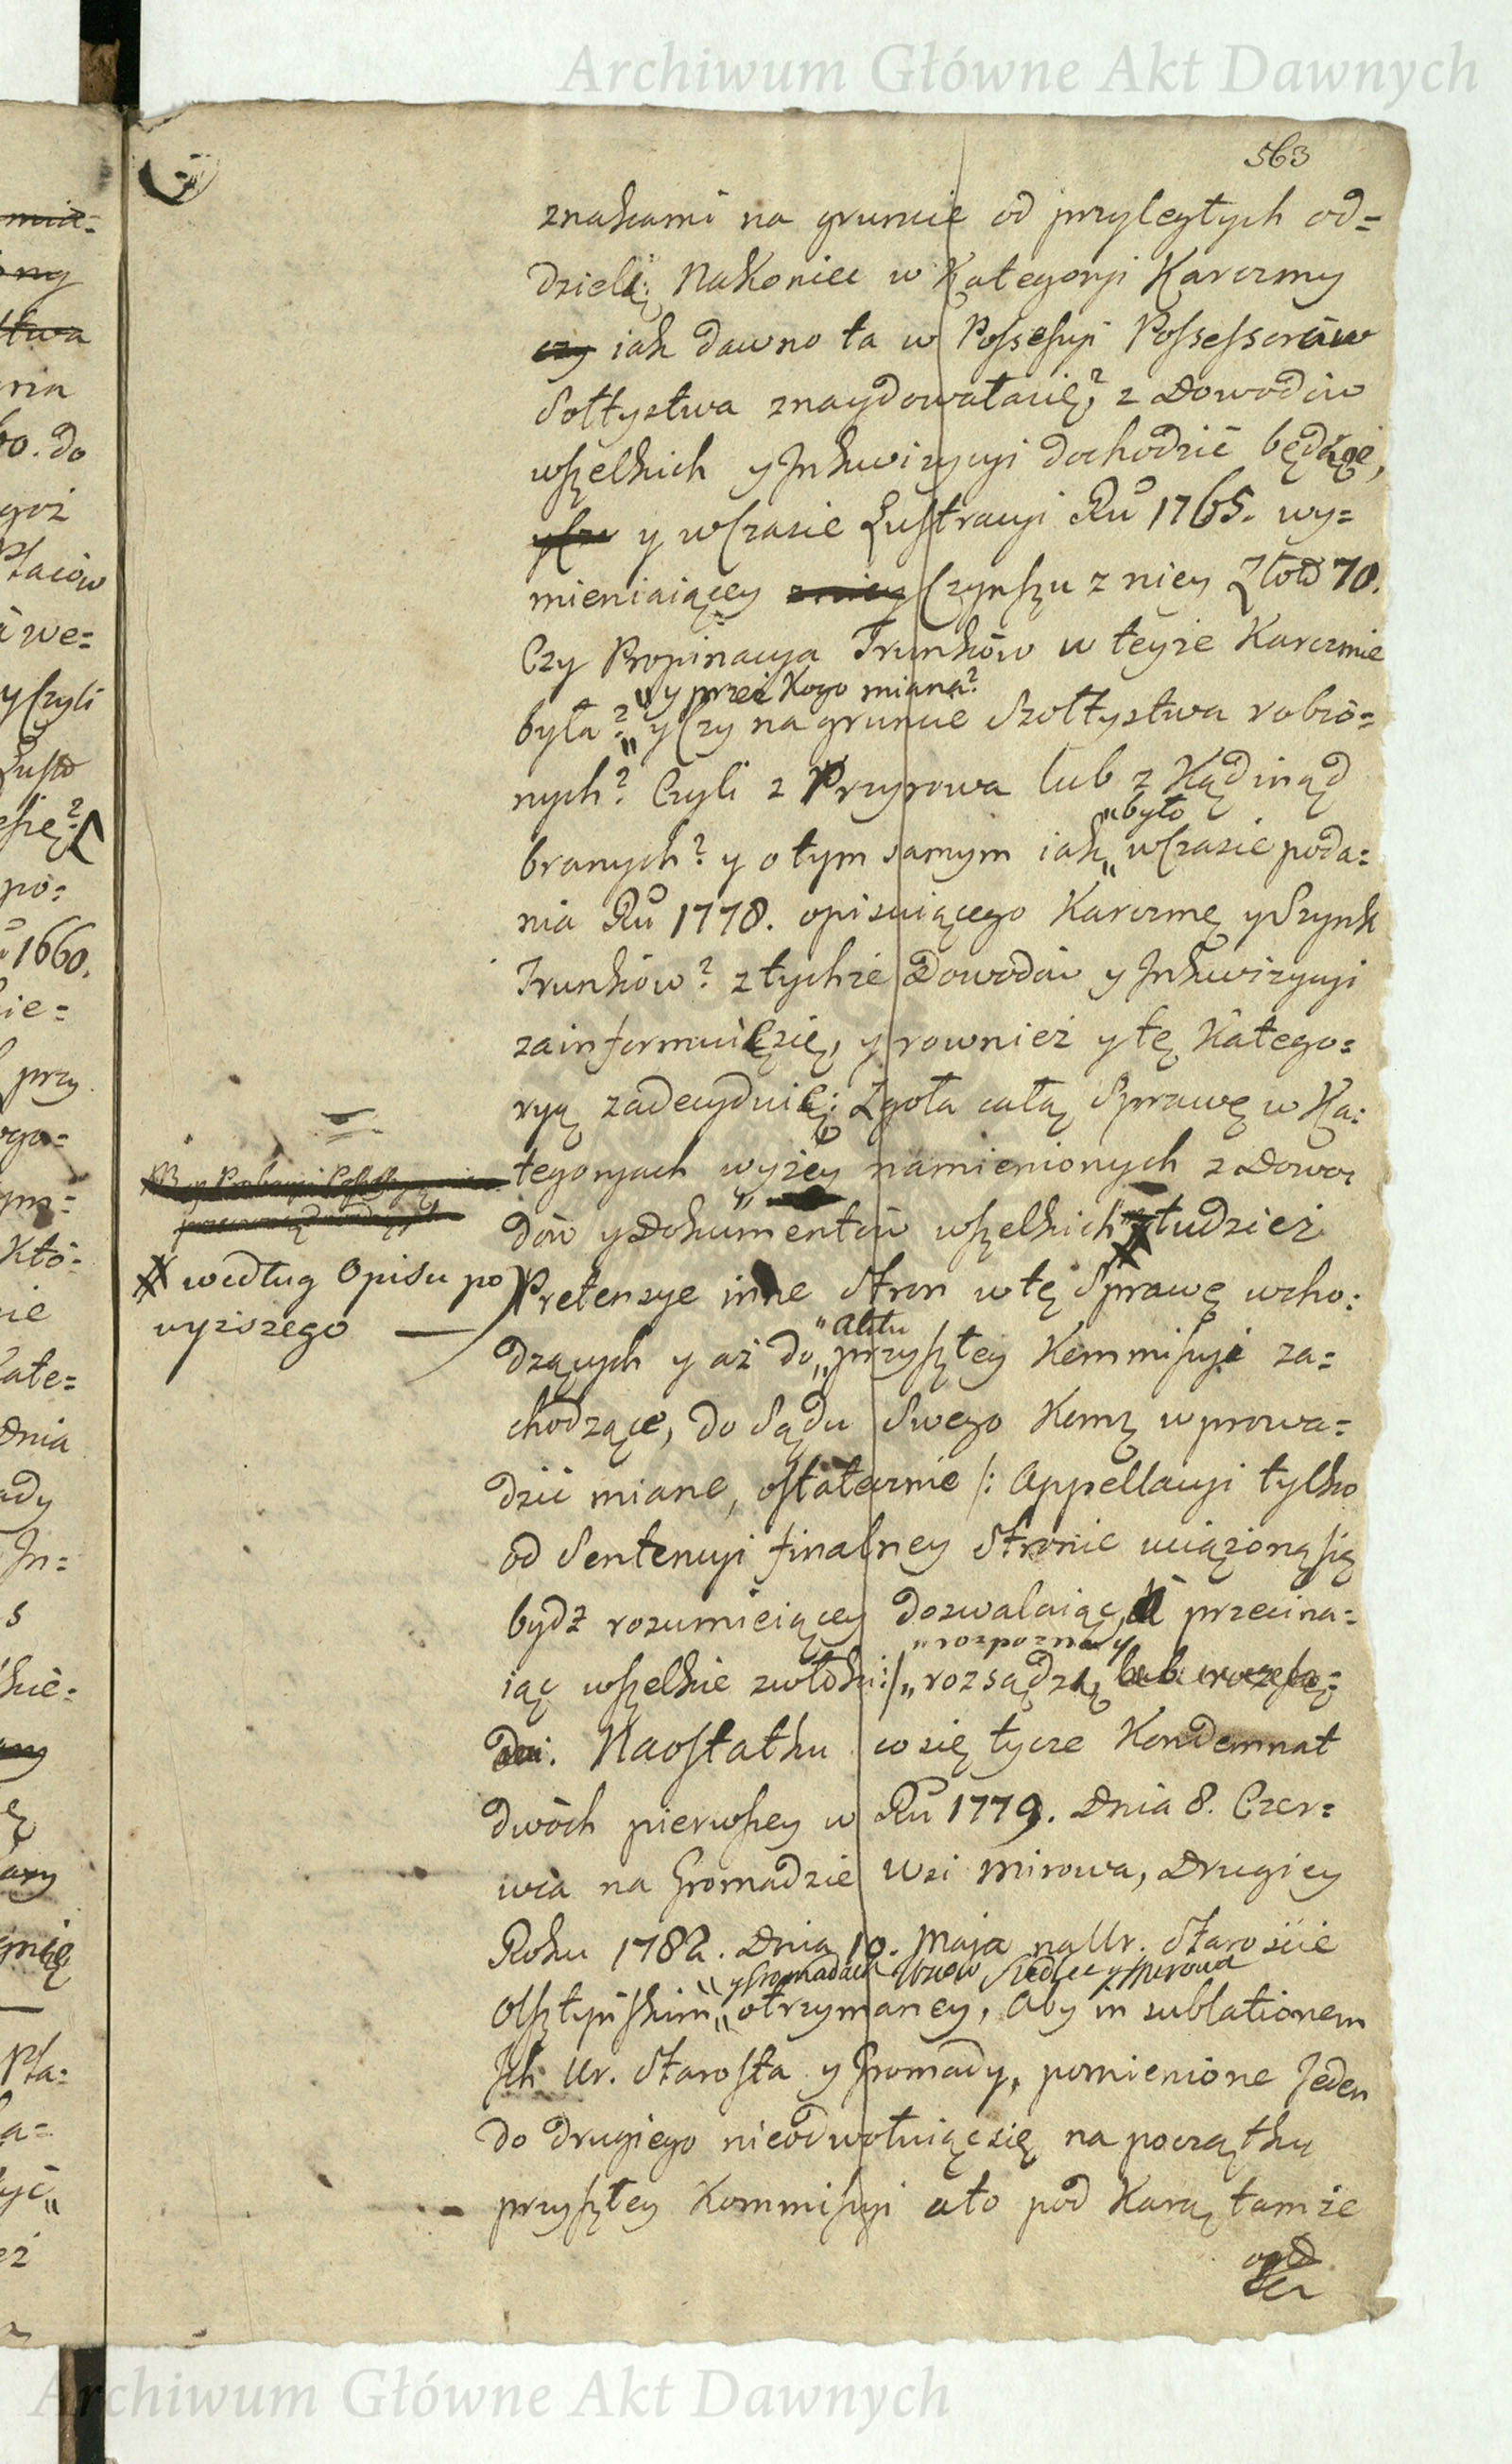 Archiwum Główne Akt Dawnych
563
znakami na gruncie od przyległych od=
dzielą; Nakoniec w Kategoryi Karczmy
czy iak dawno ta w Possessyi Possessorów
Sołtystwa znaydowałasię? z Dowodów
wszelkich y Inkwizycyi dochodzić będące,
y w Czasie Lustracyi Ru 1765. wy=
mieniaiącey z niey Czynszu z niey Złotd 70.
Czy Propinacya Trunków w teyże Karczmie
„y przez Kogo miana?
była? „ y Czy na gruncie Szołtystwa robio=
nych? Czyli z Przyrowa lub z Kądinąd
„było
branych? y o tym samym iak „ w Czasie poda=
nia Ru 1778. opisuiącego Karczmę y Szynk
Trunków? z tychże Dowodów y Inkwizycyi
zainformuią się, y rownież y tę Katego=
ryą zadecyduią; Zgoła całą Sprawę w Ka=
tegoryach wyżey namienionych z Dowo=
dów y Dokumentów wszelkich tudzież
# według Opisu po
wyższego
Pretensye inne Stron w tę Sprawę wcho=
„Aktu
dzących y aż do „ przyszłey Kommissyi za=
chodzące, do Sądu Swego Komż wprowa=
dzić miane, ostatecznie /: Appellacyi tylko
od Sentencyi finalney Stronie uciążoną się
bydź rozumieiącey dozwalaiąc, a przecina=
iąc wszelkie zwłoki :/ „ rozsądzą, lub rozsą=
dzi. Naostatku co się tycze Kondemnat
dwóch pierwszey w Ru 1779. Dnia 8. Czer=
wca na Gromadzie Wsi Mirowa, Drugiey
Roku 1782. Dnia 10. Maja na Ur. Staroście
„y Gromadach Wsiow Siedlec y Mirowa
Olsztyńskim „ otrzymaney, Aby in sublationem
Ich Ur. Starosta y Gromady, pomienione Jeden
do drugiego nieodwołuiąc się na początku
przyszłey Kommissyi a to pod Karą tamże
Archiwum Główne Akt Dawnych